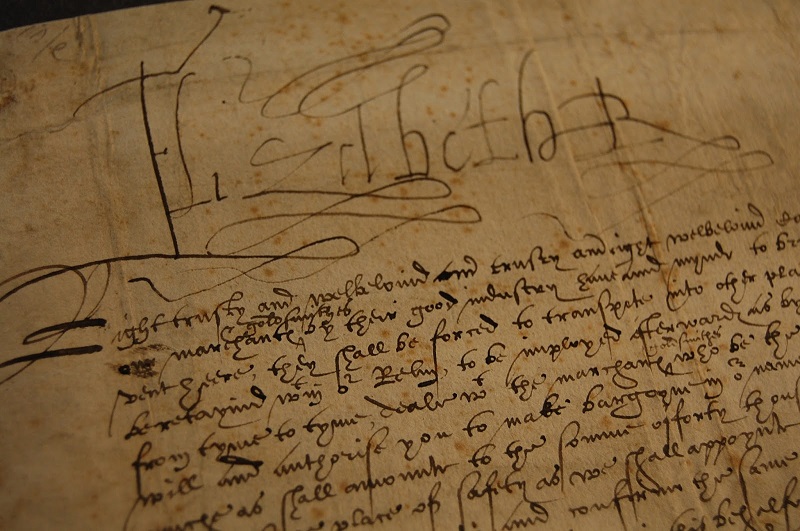 Elizabeth R
Right trusty and welbelovid and trusty and right welbelovid
goldsmithes
marchants by their good industry have and mynde to
vent heere, they shall be forced to transporte into other
beretayned wtin or Relm, to be imployed afterwards as by
goldsmithes
from tyme to tyme, deale wt the marchants who be the
will and authorise you to make bargayne in or name
as shall amounte to the somme of forty
place of safety as we shall appoynte
and confirme the same
behalfe